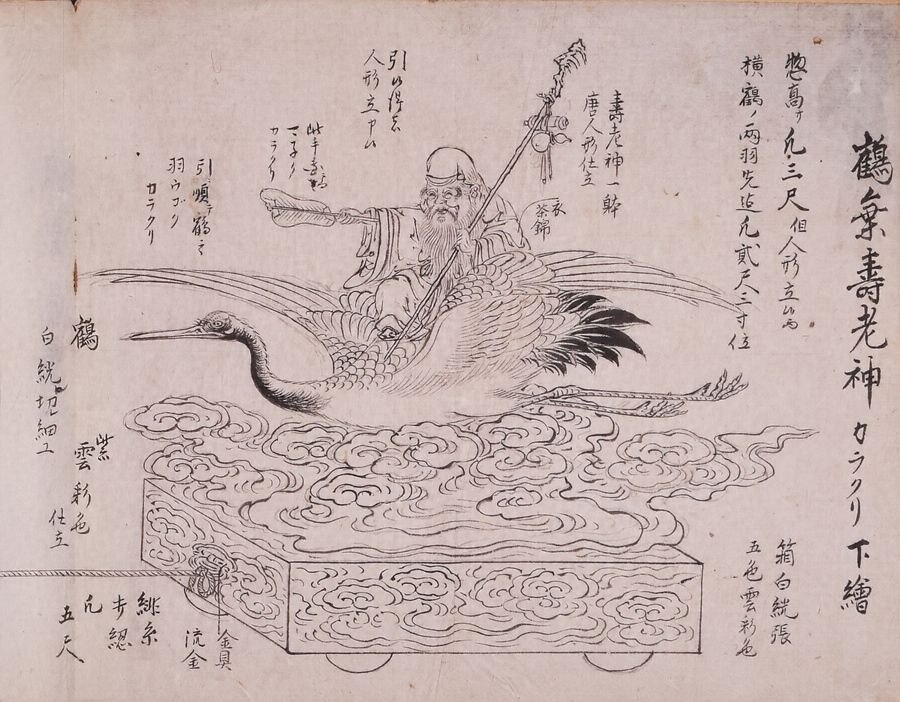 鶴乗壽老神カラクリ下繪
惣高サ凡三尺但人形立
横鶴ノ両羽先迄凡貳尺三寸位
壽老神一躰
唐人形仕立
衣
茶錦
引
人形立
カラクリ
引
鶴
羽ウゴク
カラクリ
鶴
白絖切細工
紫
雲彩色
仕立
箱白絖張
五色雲彩色
金具
流金
緋糸
凡
五尺